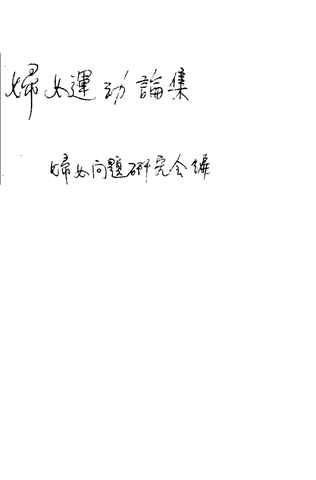 婦女運动論集
婦女問題研究会編